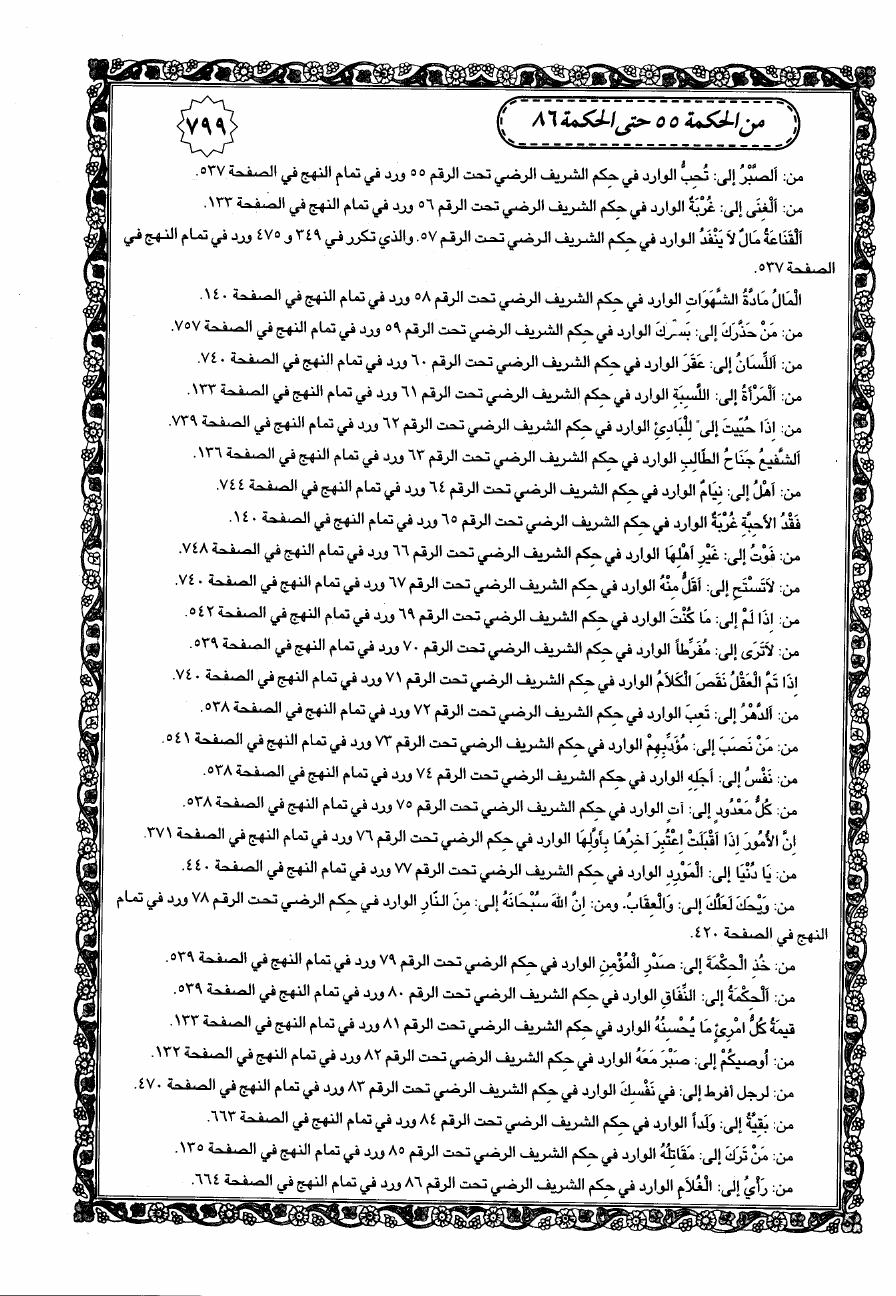 من الحكمة ٥٥ حتى الحكمة ٨٦
٧٩٩
من: اَلصَّبْرُ إلى: تُحِبُّ الوارد في حِكم الشريف الرضي تحت الرقم ٥٥ ورد في تمام النهج في الصفحة ٥٣٧.
من: اَلْغِنَى إلى: غُرْبَةٌ الوارد في حِكم الشريف الرضي تحت الرقم ٥٦ ورد في تمام النهج في الصفحة ١٣٣.
اَلْقَنَاعَةُ مَالٌ لاَ يَنْفَدُ الوارد في حِكم الشريف الرضي تحت الرقم ٥٧. والذي تكرر في ٣٤٩ و ٤٧٥ ورد في تمام النهج في
الصفحة ٥٣٧.
الْمَالُ مَادَّةُ الشَّهَوَاتِ الوارد في حِكم الشريف الرضي تحت الرقم ٥٨ ورد في تمام النهج في الصفحة ١٤٠.
من: مَنْ حَذَّرَكَ إلى: بَشَّرَكَ الوارد في حِكم الشريف الرضي تحت الرقم ٥٩ ورد في تمام النهج في الصفحة ٧٥٧.
من: اَللِّسَانُ إلى: عَقَرَ الوارد في حِكم الشريف الرضي تحت الرقم ٦٠ ورد في تمام النهج في الصفحة ٧٤٠.
من: اَلْمَرْأَةُ إلى: اللَّسِبَةِ الوارد في حِكم الشريف الرضي تحت الرقم ٦١ ورد في تمام النهج في الصفحة ١٣٣.
من: اِذَا حُيِّيتَ إلى: لِلْبَادِئِ الوارد في حِكم الشريف الرضي تحت الرقم ٦٢ ورد في تمام النهج في الصفحة ٧٣٩.
اَلشَّفيعُ جَنَاحُ الطَّالِبِ الوارد في حِكم الشريف الرضي تحت الرقم ٦٣ ورد في تمام النهج في الصفحة ١٣٦.
من: اَهْلُ إلى: نِيَامٌ الوارد في حِكم الشريف الرضي تحت الرقم ٦٤ ورد في تمام النهج في الصفحة ٧٤٤.
فَقْدُ الأَحِبَّةِ غُرْبَةٌ الوارد في حِكم الشريف الرضي تحت الرقم ٦٥ ورد في تمام النهج في الصفحة ١٤٠.
من: فَوْتُ إلى: غَيْرِ اَهْلِهَا الوارد في حِكم الشريف الرضي تحت الرقم ٦٦ ورد في تمام النهج في الصفحة ٧٤٨.
من: لاَتَسْتَحِ إلى: اَقَلُّ مِنْهُ الوارد في حِكم الشريف الرضي تحت الرقم ٦٧ ورد في تمام النهج في الصفحة ٧٤٠.
من: اِذَا لَمْ إلى: مَا كُنْتَ الوارد في حِكم الشريف الرضي تحت الرقم ٦٩ ورد في تمام النهج في الصفحة ٥٤٢.
من: لاَتَرَى إلى: مُفَرِّطاً الوارد في حِكم الشريف الرضي تحت الرقم ٧٠ ورد في تمام النهج في الصفحة ٥٣٩.
اِذَا تَمَّ الْعَقْلُ نَقَصَ الْكَلاَمُ الوارد في حِكم الشريف الرضي تحت الرقم ٧١ ورد في تمام النهج في الصفحة ٧٤٠.
من: اَلدَّهْرُ إلى: تَعِبَ الوارد في حِكم الشريف الرضي تحت الرقم ٧٢ ورد في تمام النهج في الصفحة ٥٣٨.
من: مَنْ نَصَبَ إلى: مُؤَدِّبِهِمْ الوارد في حِكم الشريف الرضي تحت الرقم ٧٣ ورد في تمام النهج في الصفحة ٥٤١.
من: نَفْسُ إلى: اَجَلِهِ الوارد في حِكم الشريف الرضي تحت الرقم ٧٤ ورد في تمام النهج في الصفحة ٥٣٨.
من: كُلُّ مَعْدُودٍ إلى: آتٍ الوارد في حِكم الشريف الرضي تحت الرقم ٧٥ ورد في تمام النهج في الصفحة ٥٣٨.
اِنَّ الأُمُورَ اِذَا اَقْبَلَتْ اِعْتُبِرَ آخِرُهَا بِأَوَّلِهَا الوارد في حِكم الرضي تحت الرقم ٧٦ ورد في تمام النهج في الصفحة ٣٧١.
من: يَا دُنْيَا إلى: الْمَوْرِدِ الوارد في حِكم الشريف الرضي تحت الرقم ٧٧ ورد في تمام النهج في الصفحة ٤٤٠.
من: وَيْحَكَ لَعَلَّكَ إلى: وَالْعِقَابُ. ومن: اِنَّ اللهَ سُبْحَانَهُ إلى: مِنَ النَّارِ الوارد في حِكم الرضي تحت الرقم ٧٨ ورد في تمام
النهج في الصفحة ٤٢٠.
من: خُذِ الْحِكْمَةَ إلى: صَدْرِ الْمُؤْمِنِ الوارد في حِكم الرضي تحت الرقم ٧٩ ورد في تمام النهج في الصفحة ٥٣٩.
من: اَلْحِكْمَةُ إلى: النِّفَاقِ الوارد في حِكم الشريف الرضي تحت الرقم ٨٠ ورد في تمام النهج في الصفحة ٥٣٩.
قيمَةُ كُلِّ امْرِئٍ مَا يُحْسِنُهُ الوارد في حِكم الشريف الرضي تحت الرقم ٨١ ورد في تمام النهج في الصفحة ١٣٣.
من: اُوصيكُمْ إلى: صَبْرَ مَعَهُ الوارد في حِكم الشريف الرضي تحت الرقم ٨٢ ورد في تمام النهج في الصفحة ١٣٢.
من: لرجل أفرط إلى: في نَفْسِكَ الوارد في حِكم الشريف الرضي تحت الرقم ٨٣ ورد في تمام النهج في الصفحة ٤٧٠.
من: بَقِيَّةُ إلى: وَلَداً الوارد في حِكم الشريف الرضي تحت الرقم ٨٤ ورد في تمام النهج في الصفحة ٦٦٣.
من: مَنْ تَرَكَ إلى: مَقَاتِلُهُ الوارد في حِكم الشريف الرضي تحت الرقم ٨٥ ورد في تمام النهج في الصفحة ١٣٥.
من: رَأْيُ إلى: الْغُلاَمِ الوارد في حِكم الشريف الرضي تحت الرقم ٨٦ ورد في تمام النهج في الصفحة ٦٦٤.